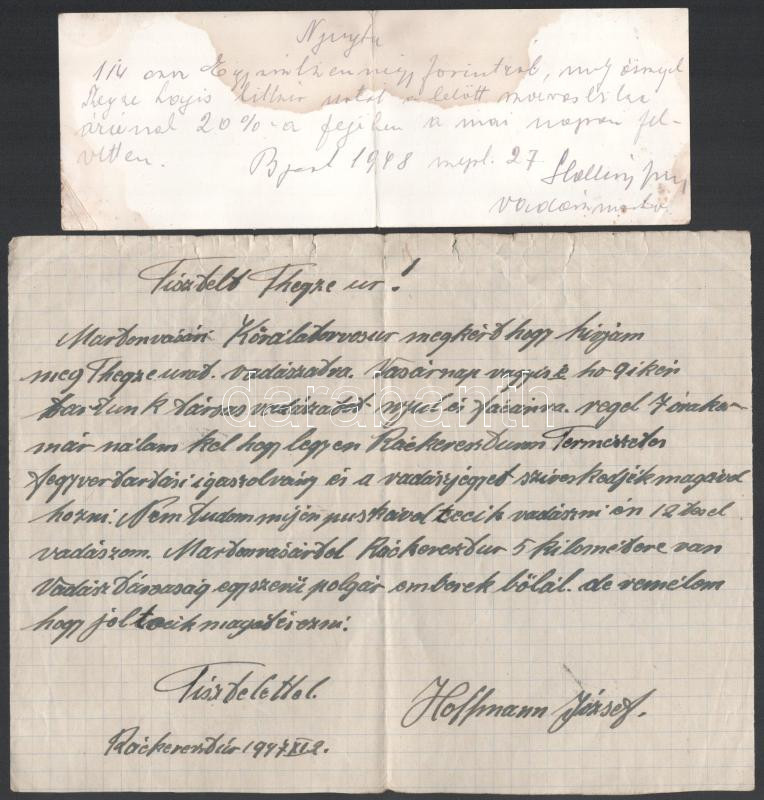 Nyugta
114 azaz Egyszáztizennégy forintról, mely összeget
Thegze Lajos úr a lelőtt szarvasbika
árának 20%-a fejében a mai napon fel-
vettem. Bpest 1948 szept. 27.
Tisztelt Thegze ur!
Martonvásári Körállatorvosur megkért hogy hivjam
meg Thegze urat. vadászatra. Vasárnap vagyis e ho 9 ikén
tartunk társas vadászatot nyul és fácánra. regel 7 órakor
már nálam kel hogy legyen Ráckereszturon Termeszetes
fegyvertartási igazolvány és a vadászjegyet sziveskedjék magával
hozni. Nem tudom mijen puskával tecik vadászni én 12 tesel
vadászom. Martonvásártol Ráckeresztur 5 kilométere van
Vadász társaság egyszerű polgár emberek bölál. de remélem
hogy jol tecik magát érezni.
Tisztelettel.
Hoffmann József.
Ráckeresztúr 1947.XI.2.
darabanth